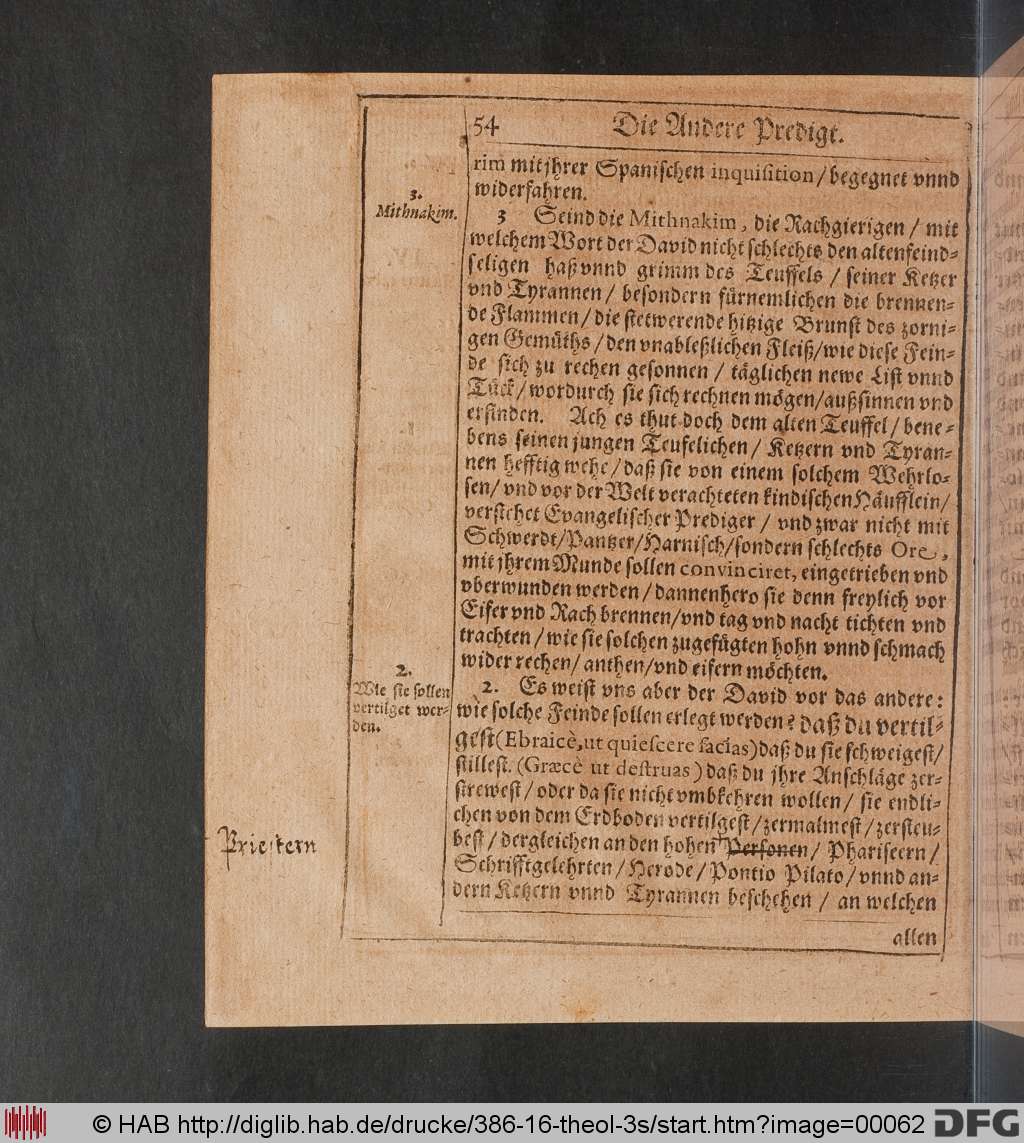 54 Die Andere Predigt.
rim mit jhrer Spanischen inquisition/begegnet vnnd
widerfahren.
3.
Mithnakim.
3 Seind die Mithnakim, die Rachgierigen / mit
welchem Wort der David nicht schlechts den altenfeind-
seligen haß vnnd grimm des Teuffels / seiner Ketzer
vnd Tyrannen / besondern fürnemlichen die brennen-
de Flammen/die stetwerende hitzige Brunst des zorni-
gen Gemüths/den vnableßlichen Fleiß/wie diese Fein-
de sich zu rechen gesonnen / täglichen newe List vnnd
Tück/wordurch sie sich rechnen mögen/außsinnen vnd
erfinden. Ach es thut doch dem alten Teuffel/bene-
bens seinen jungen Teufelichen/ Ketzern vnd Tyran-
nen hefftig wehe/daß sie von einem solchem Wehrlo-
sen/vnd vor der Welt verachteten kindischen Häufflein/
verstehet Evangelischer Prediger / vnd zwar nicht mit
Schwerdt/Pantzer/Harnisch/sondern schlechts Ore,
mit jhrem Munde sollen convinciret, eingetrieben vnd
vberwunden werden/dannenhero sie denn freylich vor
Eifer vnd Rach brennen/vnd tag vnd nacht tichten vnd
trachten/wie sie solchen zugefügten hohn vnnd schmach
wider rechen/anthen/vnd eifern möchten.
2.
Wie sie sollen
vertilget wer-
den.
2. Es weist vns aber der David vor das andere:
wie solche Feinde sollen erlegt werden? daß du vertil-
gest (Ebraicè, ut quiescere facias) daß du sie schweigest/
stillest. (Græcè ut destruas) daß du jhre Anschläge zer-
strewest/ oder da sie nicht vmbkehren wollen/ sie endli-
chen von dem Erdboden vertilgest/zermalmest/zersteu-
best/dergleichen an den hohen Personen/ Phariseern/
Priestern
Schrifftgelehrten/Herode/Pontio Pilato/vnnd an-
dern Ketzern vnnd Tyrannen beschehen / an welchen
allen
© HAB http://diglib.hab.de/drucke/386-16-theol-3s/start.htm?image=00062 DFG